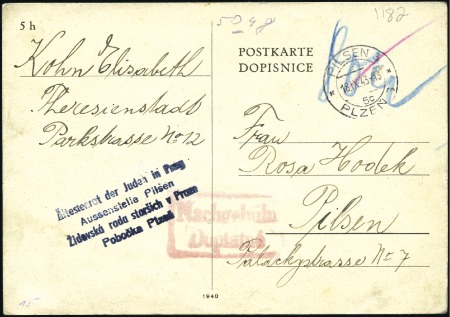 5 h
5048
1182
Kohn Elisabeth
Theresienstadt
Parkstrasse No 12
POSTKARTE
DOPISNICE
PILSEN 1
5c
PLZEŇ 1
Frau
Rosa Hodek
Pilsen
Palackystrasse Nr 7
Ältestenrat der Juden in Prag
Aussenstelle Pilsen
Židovská rada starších v Praze
Pobočka Plzeň
Nachgebühr
Doplatné
1940